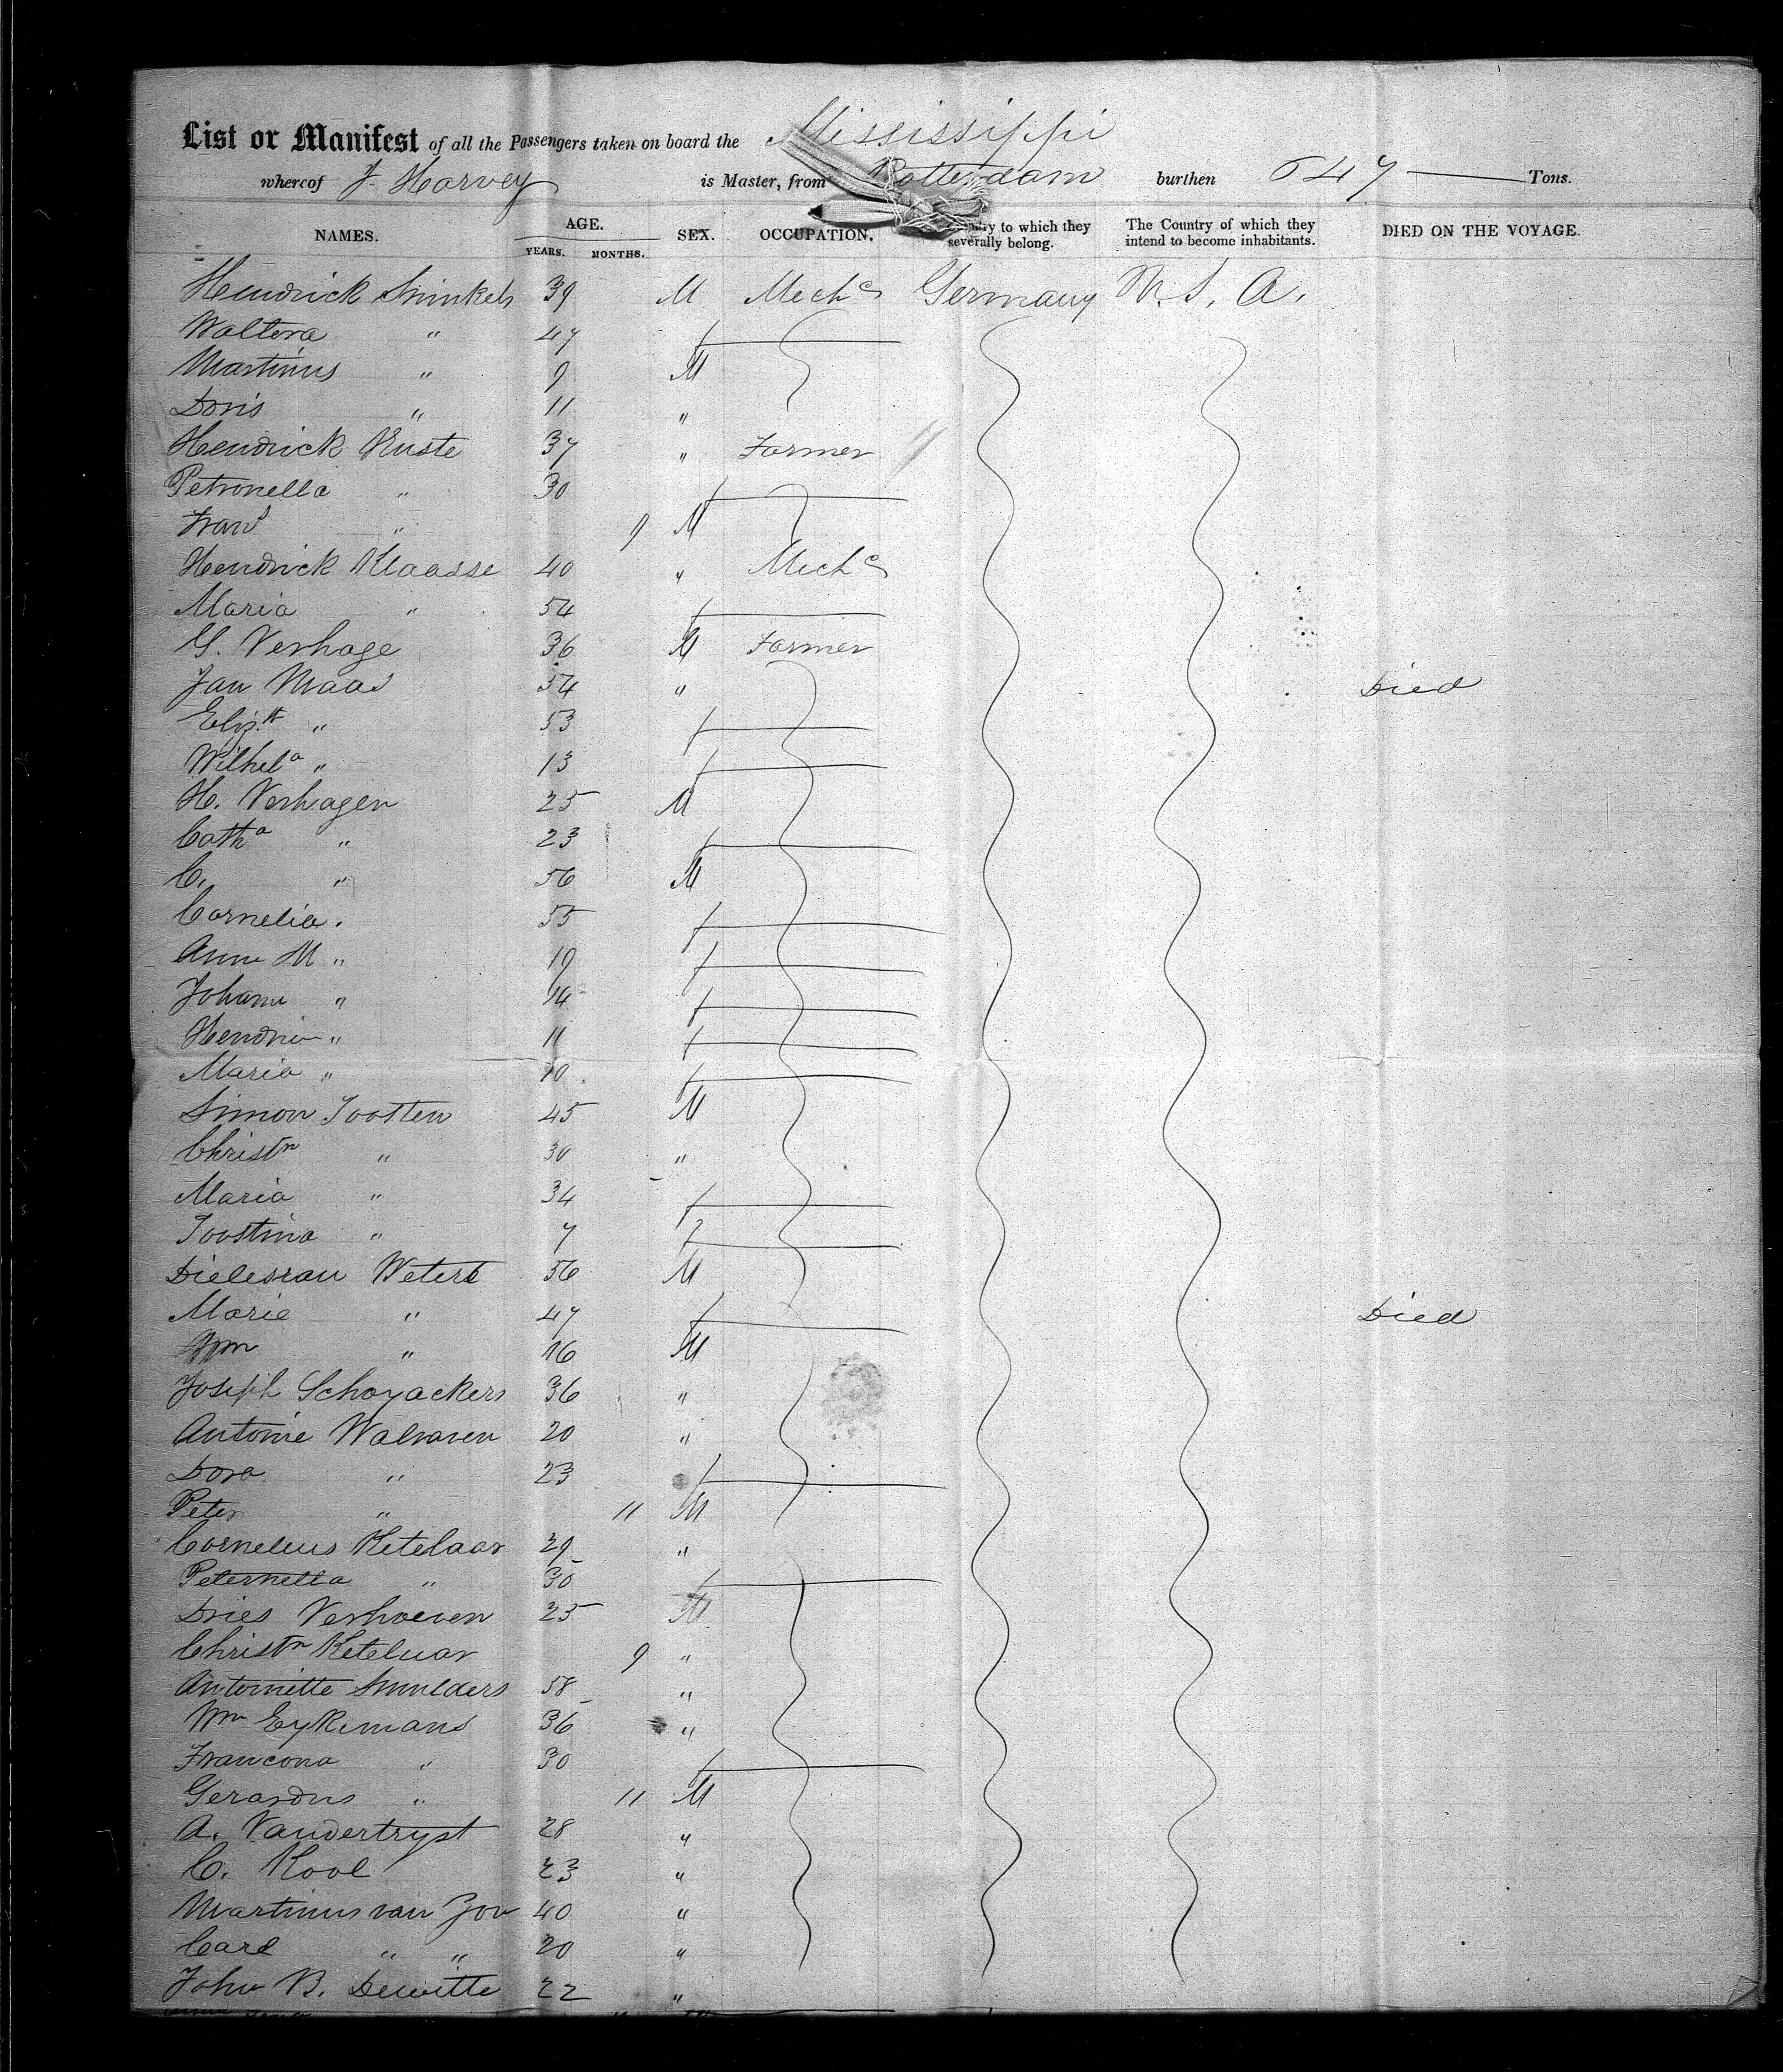 List or Manifest of all the Passengers taken on board the Mississippi
whereof J. Harvey is Master, from Rotterdam burthen 647 Tons.
NAMES. AGE. YEARS. MONTHS. SEX. OCCUPATION. Country to which they severally belong. The Country of which they intend to become inhabitants. DIED ON THE VOYAGE.
Hendrick Sminkels 39 M Mechc Germany U. S. A.
Woltera " 47 f
Martinus " 9 M
Doris " 11 "
Hendrick Kuste 37 " Farmer
Petronella " 30 f
Frans " 9 M
Hendrick Klaasse 40 " Mechc
Maria " 54 f
G. Verhage 36 M Farmer
Jan Maas 54 " Died
Elizth " 53 f
Wilhela " 13 f
H. Verhagen 25 M
Catha " 23 f
C. " 56 M
Cornelia " 55 f
Anna M " 19 f
Johann " 14 f
Hendrin " 11 f
Maria " 10 f
Simon Joosten 45 M
Christn " 30 "
Maria " 34 f
Joostina " 7 f
Weters 56 M
Marie " 47 f Died
Wm " 16 M
Joseph Schoyackers 36 "
Antonie Walraven 20 "
Dora " 23 f
Peter " 11 M
Cornelius Ketelaar 29 "
Peternella " 30 f
Dries Verhoeven 25 M
Christn Ketelaar 9 "
Antoinette Smulders 58 "
Wm Eykemans 36 "
Francona " 30 f
Gerardus " 11 M
A. Vandertryst 28 "
C. Kool 23 "
Martinus van Zon 40 "
Carl " " 20 "
John B. Dewitte 22 "